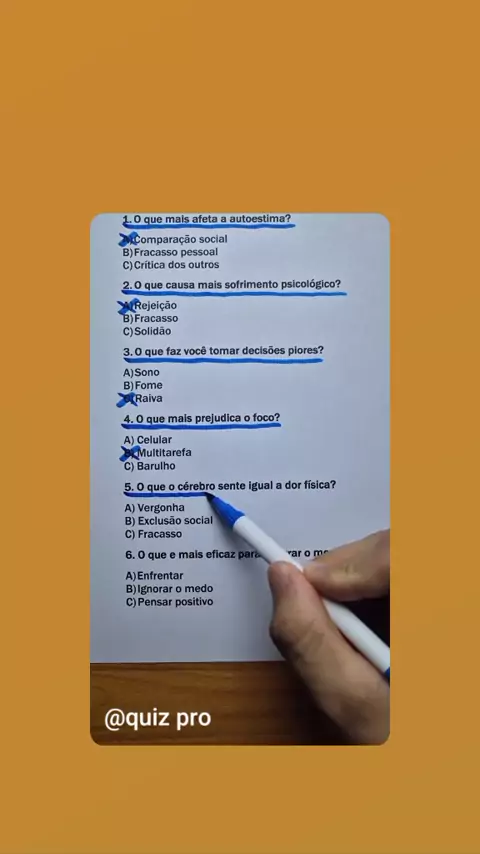 1. O que mais afeta a autoestima?
A) Comparação social
B) Fracasso pessoal
C) Crítica dos outros
2. O que causa mais sofrimento psicológico?
A) Rejeição
B) Fracasso
C) Solidão
3. O que faz você tomar decisões piores?
A) Sono
B) Fome
C) Raiva
4. O que mais prejudica o foco?
A) Celular
B) Multitarefa
C) Barulho
5. O que o cérebro sente igual a dor física?
A) Vergonha
B) Exclusão social
C) Fracasso
6. O que e mais eficaz o
A) Enfrentar
B) Ignorar o medo
C) Pensar positivo
@quiz pro